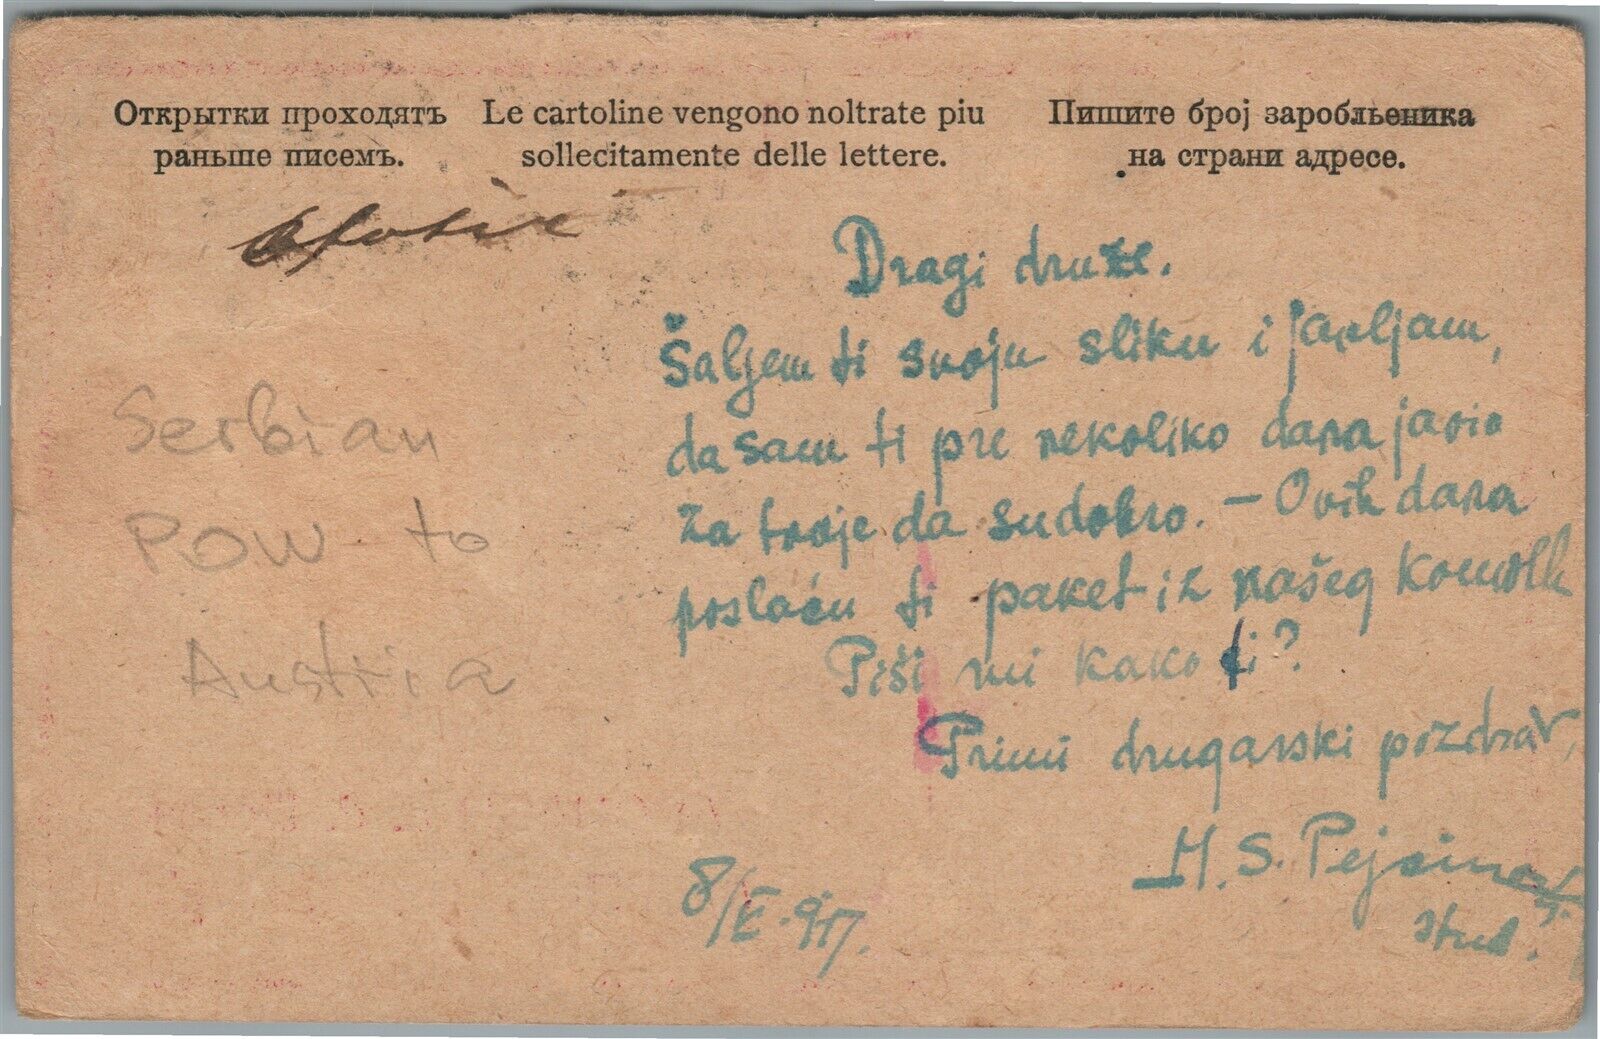 Открытки проходятъ
раньше писемъ.
Le cartoline vengono noltrate piu
sollecitamente delle lettere.
Пишите број заробљеника
на страни адресе.
Serbian
POW to
Austria
Dragi druže.
Šaljem ti svoju sliku i javljam,
da sam ti pre nekoliko dana javio
za tvoje da su dobro. – Ovih dana
poslaću ti paket iz našeg
Piši mi kako ti?
Primi drugarski pozdrav,
M. S.
stud.